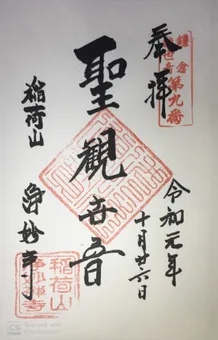 奉拝
鎌倉
第九番
令和元年
十月廿六日
聖観世音
稲荷山
浄妙寺
稲荷山
浄妙寺